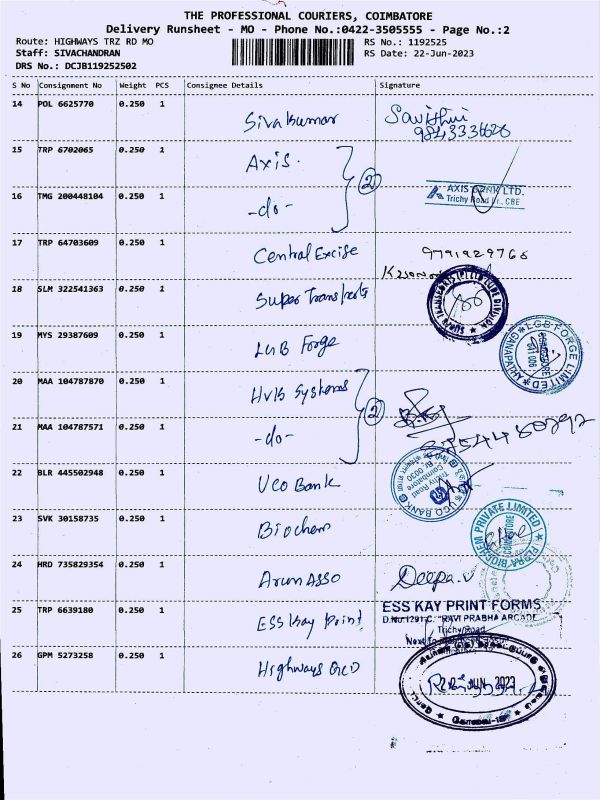 THE PROFESSIONAL COURIERS, COIMBATORE
Delivery Runsheet - MO - Phone No.:0422-3505555 - Page No.:2
Route: HIGHWAYS TRZ RD MO
RS No.: 1192525
Staff: SIVACHANDRAN
RS Date: 22-Jun-2023
DRS No.: DCJB119252502
S No Consignment No Weight PCS Consignee Details Signature
14 POL 6625770 0.250 1 Sivakumar
15 TRP 6702065 0.250 1 Axis.
2
16 TMG 200448104 0.250 1 -do-
AXIS BANK LTD.
Trichy Road Br., CBE
17 TRP 64703609 0.250 1 Central Excise 9791929766
18 SLM 322541363 0.250 1 Super Transports
19 MYS 29387609 0.250 1 LGB Forge
LGB FORGE LIMITED
GANAPATHY
20 MAA 104787870 0.250 1 HVB Systems
2
21 MAA 104787571 0.250 1 -do-
22 BLR 445502948 0.250 1 UCO Bank
UCO BANK
Trichy Road
Coimbatore
23 SVK 30158735 0.250 1 Biochem
FLORA BIOCHEM PRIVATE LIMITED
COIMBATORE
24 HRD 735829354 0.250 1 Arun Asso Deepa.V
25 TRP 6639180 0.250 1 ESS Kay Print
ESS KAY PRINT FORMS
D.No.1291-C, "RAVI PRABHA ARCADE"
Trichy Road
Next to
26 GPM 5273258 0.250 1 Highways
JUN 2023